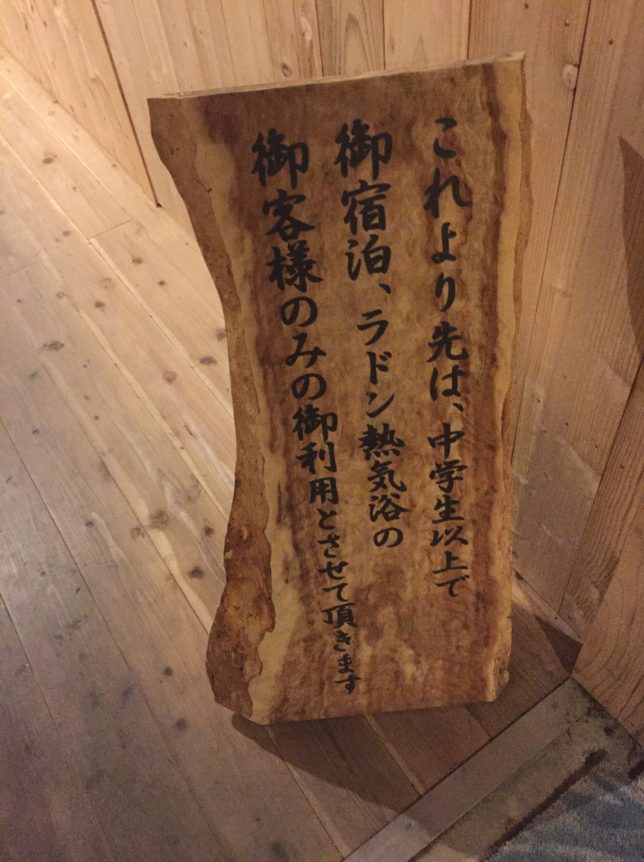 これより先は、中学生以上で
御宿泊、ラドン熱気浴の
御客様のみの御利用とさせて頂きます